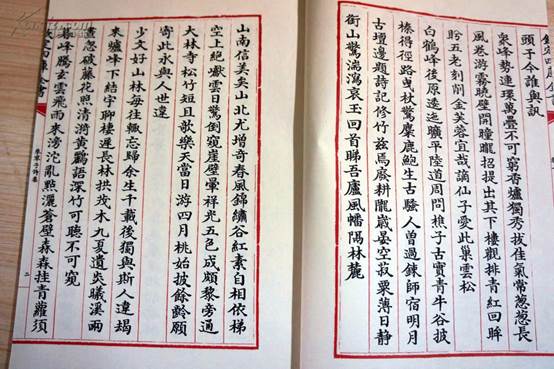 頭子今誰與訊
衆峰勢連環萬疊不可窮香爐獨秀拔佳氣常葱葱長
風卷游霧曉壁開曈曨招提出其下棲觀排青紅回眸
盻五老刻削金芙蓉宜哉謫仙子愛此巢雲松
白鶴峰後原逶迤曠平陸道周問樵子古實青牛谷披
榛得徑路曳杖驚麋鹿鮑生古騷人曾過鍊師宿明月
古壇邊題詩記修竹兹焉廢耕隴嵗晏空菽粟薄日静
銜山驚湍瀉哀玉回首睇吾廬風幡隔林麓
山南信美矣山北尤增奇春風錦繡谷紅素自相依梯
空上絶巘雲日驚倒窺崖壁暈祥光五色成頗黎旁通
大林寺松竹短且欹樂天當日游四月桃始披餘齡願
寄此永與人世違
少文好山林每往輒忘歸余生千載後獨與斯人違朅
來爐峰下結宇聊棲遲長林拱茂木九夏遺炎曦溪雨
晝忽破藤花照清漪黄鸝語深竹可聽不可窺
暮峰騰玄雲飛雨來滂沱亂點灑蒼壁森森挂青蘿須